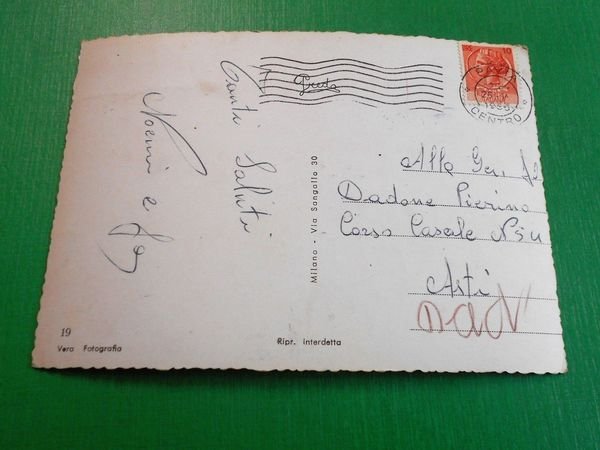 Tanti Saluti
Noemi e
Alla Gen.
Dadone Pierino
Corso Casale N
Asti
Milano - Via Sangallo 30
10
CENTRO
19
Vera Fotografia
Ripr. interdetta